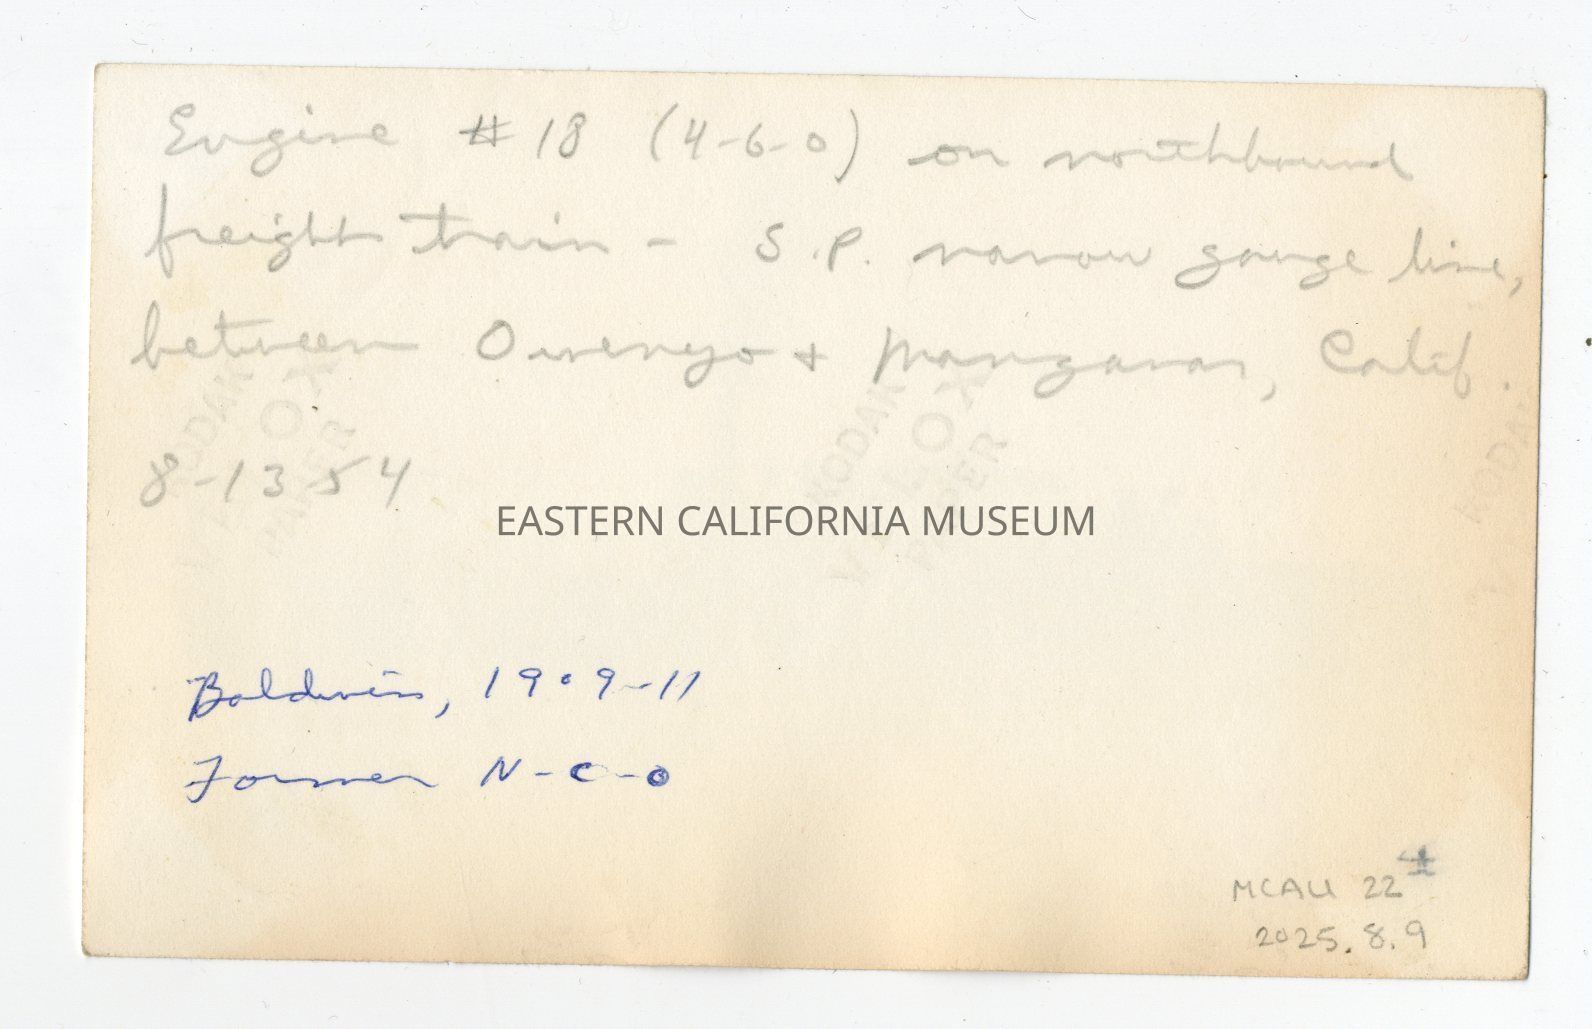 Engine #18 (4-6-0) on northbound
freight train - S.P. narrow gauge line,
between Owenyo + Manzanar, Calif.
8-13-54
KODAK
VELOX
PAPER
KODAK
VELOX
PAPER
KODAK
EASTERN CALIFORNIA MUSEUM
Baldwin, 1909-11
Former N-C-O
MCAU 22
2025.8.9